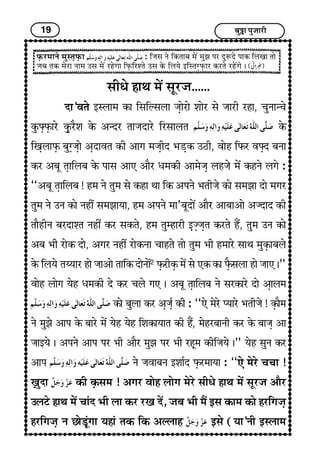 19
बुड्ढा पुजारी
फ़रमाने मुस्त़फ़ा صَلَّى اللهُ تَعَالٰى عَلَيْهِ وَاٰلِهٖ وَسَلَّم : जिस ने किताब में मुझ पर दुरूदे पाक लिखा तो
जब तक मेरा नाम उस में रहेगा फ़िरिश्ते उस के लिये इस्तिग़्फ़ार करते रहेंगे ।
सीधे हाथ में सूरज......
दा'वते इस्लाम का सिल्सिला ज़ोरो शोर से जारी रहा, चुनान्चे
कुफ़्फ़ारे कु़रैश के अन्दर ताजदारे रिसालत صَلَّى اللهُ تَعَالٰى عَلَيْهِ وَاٰلِهٖ وَسَلَّم के
ख़िलाफ़ बुग़्ज़ो अ़दावत की आग मज़ीद भड़क उठी, वोह फिर वफ़्द बना
कर अबू त़ालिब के पास आए और धमकी आमेज़ लहजे में कहने लगे :
‘‘अबू त़ालिब ! हम ने तुम से कहा था कि अपने भतीजे को समझा दो मगर
तुम ने उन को नहीं समझाया, हम अपने मा'बूदों और आबाओ अज्दाद की
तौहीन बरदाश्त नहीं कर सकते, हम तुम्हारी इ़ज़्ज़त करते हैं, तुम उन को
अब भी रोक दो, अगर नहीं रोकना चाहते तो तुम भी हमारे साथ मुक़ाबले
के लिये तय्यार हो जाओ ताकि दोनों फ़रीक़ में से एक का फ़ैसला हो जाए ।’’
वोह लोग येह धमकी दे कर चले गए । अबू त़ालिब ने सरकारे दो आ़लम
صَلَّى اللهُ تَعَالٰى عَلَيْهِ وَاٰلِهٖ وَسَلَّم को बुला कर अ़र्ज़ की : ‘‘ऐ मेरे प्यारे भतीजे ! क़ौम
ने मुझे आप के बारे में येह येह शिकायात की हैं, मेहरबानी कर के बाज़ आ
जाइये । अपने आप पर भी और मुझ पर भी रह़म कीजिये ।’’ येह सुन कर
आप صَلَّى اللهُ تَعَالٰى عَلَيْهِ وَاٰلِهٖ وَسَلَّم ने जवाबन इर्शाद फ़रमाया : ‘‘ऐ मेरे चचा !
ख़ुदा عَزَّوَجَلَّ की क़सम ! अगर वोह लोग मेरे सीधे हाथ में सूरज और
उलटे हाथ में चांद भी ला कर रख दें, जब भी मैं इस काम को हरगिज़
हरगिज़ न छोड़ूंगा यहां तक कि अल्लाह عَزَّوَجَلَّ इसे ( या'नी इस्लाम